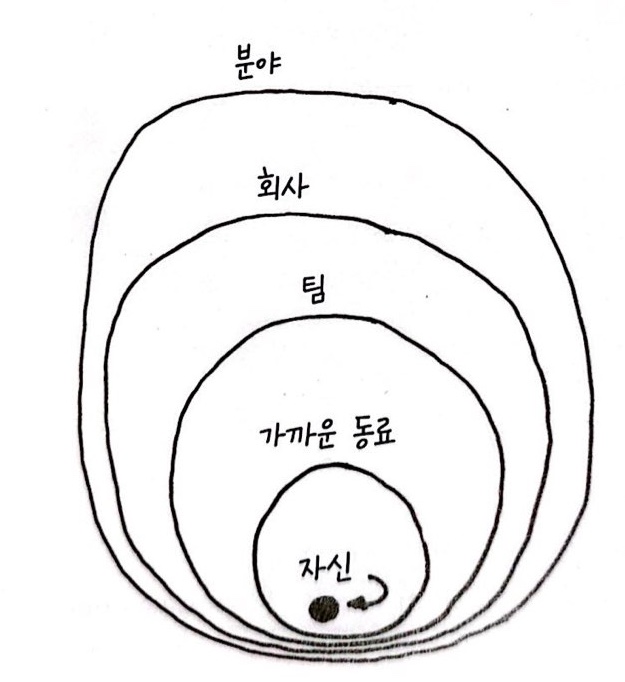 분야
회사
팀
가까운 동료
자신